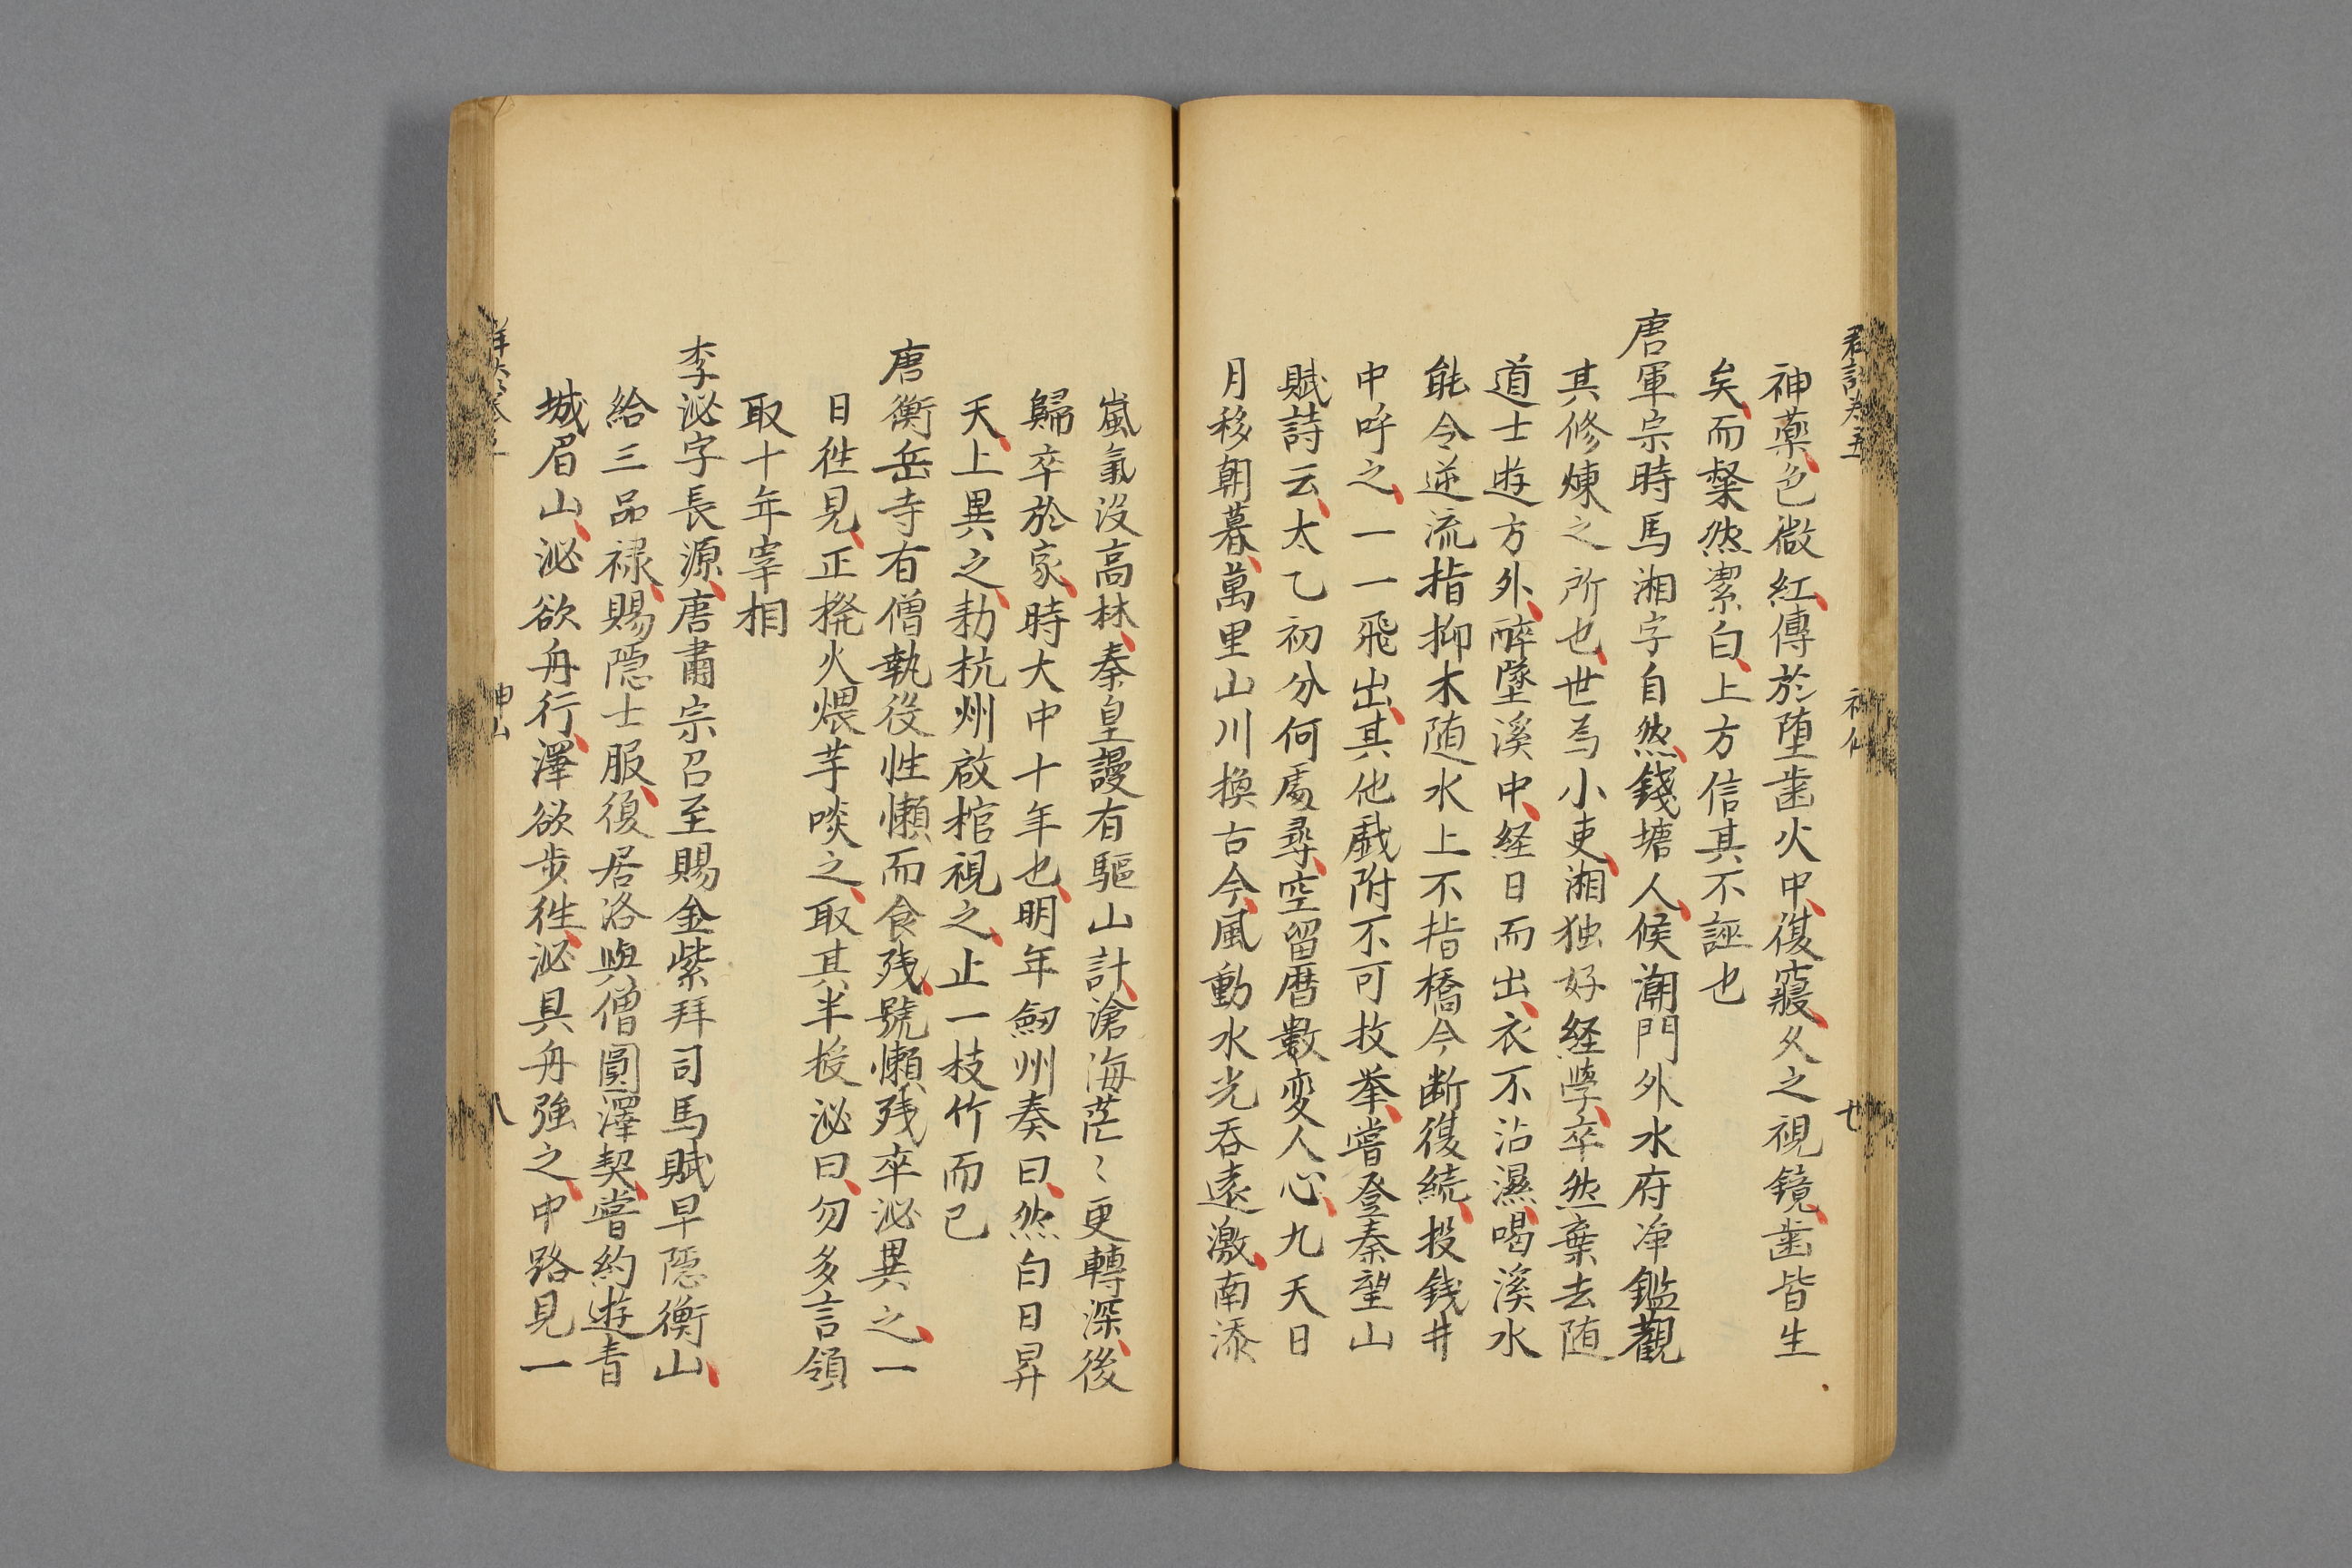 神藥色微紅傳於堕歯火中復寢久之視鏡歯皆生
矣而粲然潔白上方信其不誣也
唐軍宗時馬湘字自然錢塘人候潮門外水府净鑑觀
其修煉之所也世為小吏湘独好経學卒然棄去随
道士遊方外醉墜溪中経日而出衣不沾濕喝溪水
能令逆流指抑木随水上不指橋今断復続投銭井
中呼之一一飛出其他戯附不可枚挙嘗登秦望山
賦詩云太乙初分何處尋空留暦數変人心九天日
月移朝暮萬里山川換古今風動水光吞遠激南添
嵐氣没高林秦皇謾有驅山計滄海茫〻更轉深後
歸卒於家時大中十年也明年劒州奏曰然白日昇
天上異之勅杭州啟棺視之止一枝竹而已
唐衡岳寺有僧執役性懶而食残號懶残卒泌異之一
日徃見正撥火煨芋啖之取其半授泌曰勿多言領
取十年宰相
李泌字長源唐肅宗召至賜金紫拜司馬賦早隠衡山
給三品禄賜隠士服復居洛與僧圓澤契嘗約遊青
城眉山泌欲舟行澤欲歩徃泌具舟強之中路見一